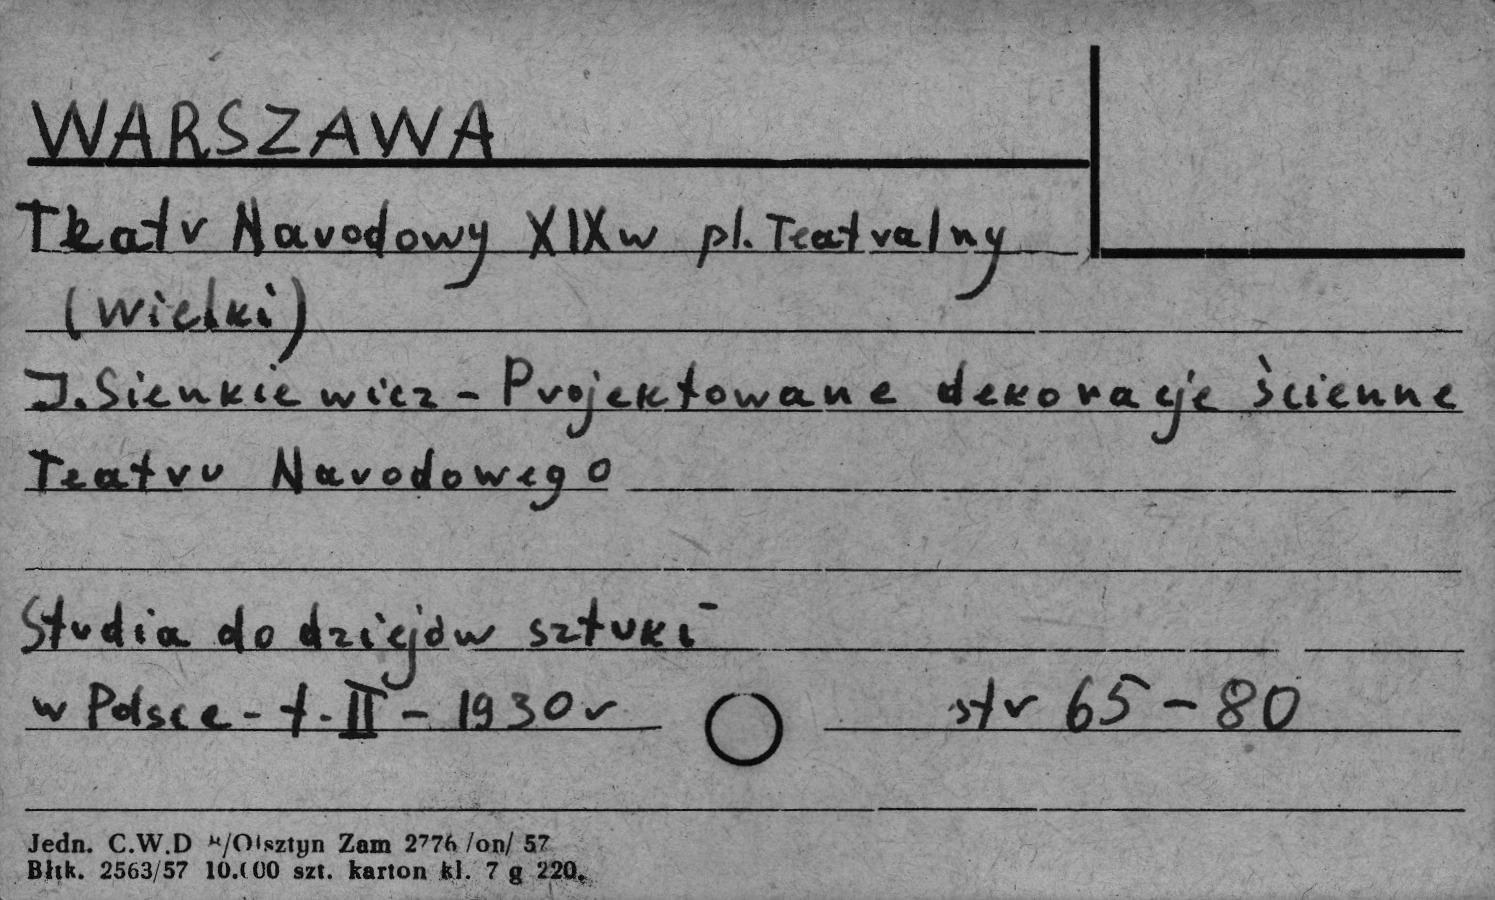 WARSZAWA
Teatr Narodowy XIXw pl. Teatralny
(Wielki)
J. Sienkiewicz - Projektowane dekoracje ścienne
Teatru Narodowego
Studia do dziejów sztuki
w Polsce - t. II - 1930 r str 65 - 80
Jedn. C.W.D /Olsztyn Zam 2776 /on/ 57
Błtk. 2563/57 10.000 szt. karton kl. 7 g 220.